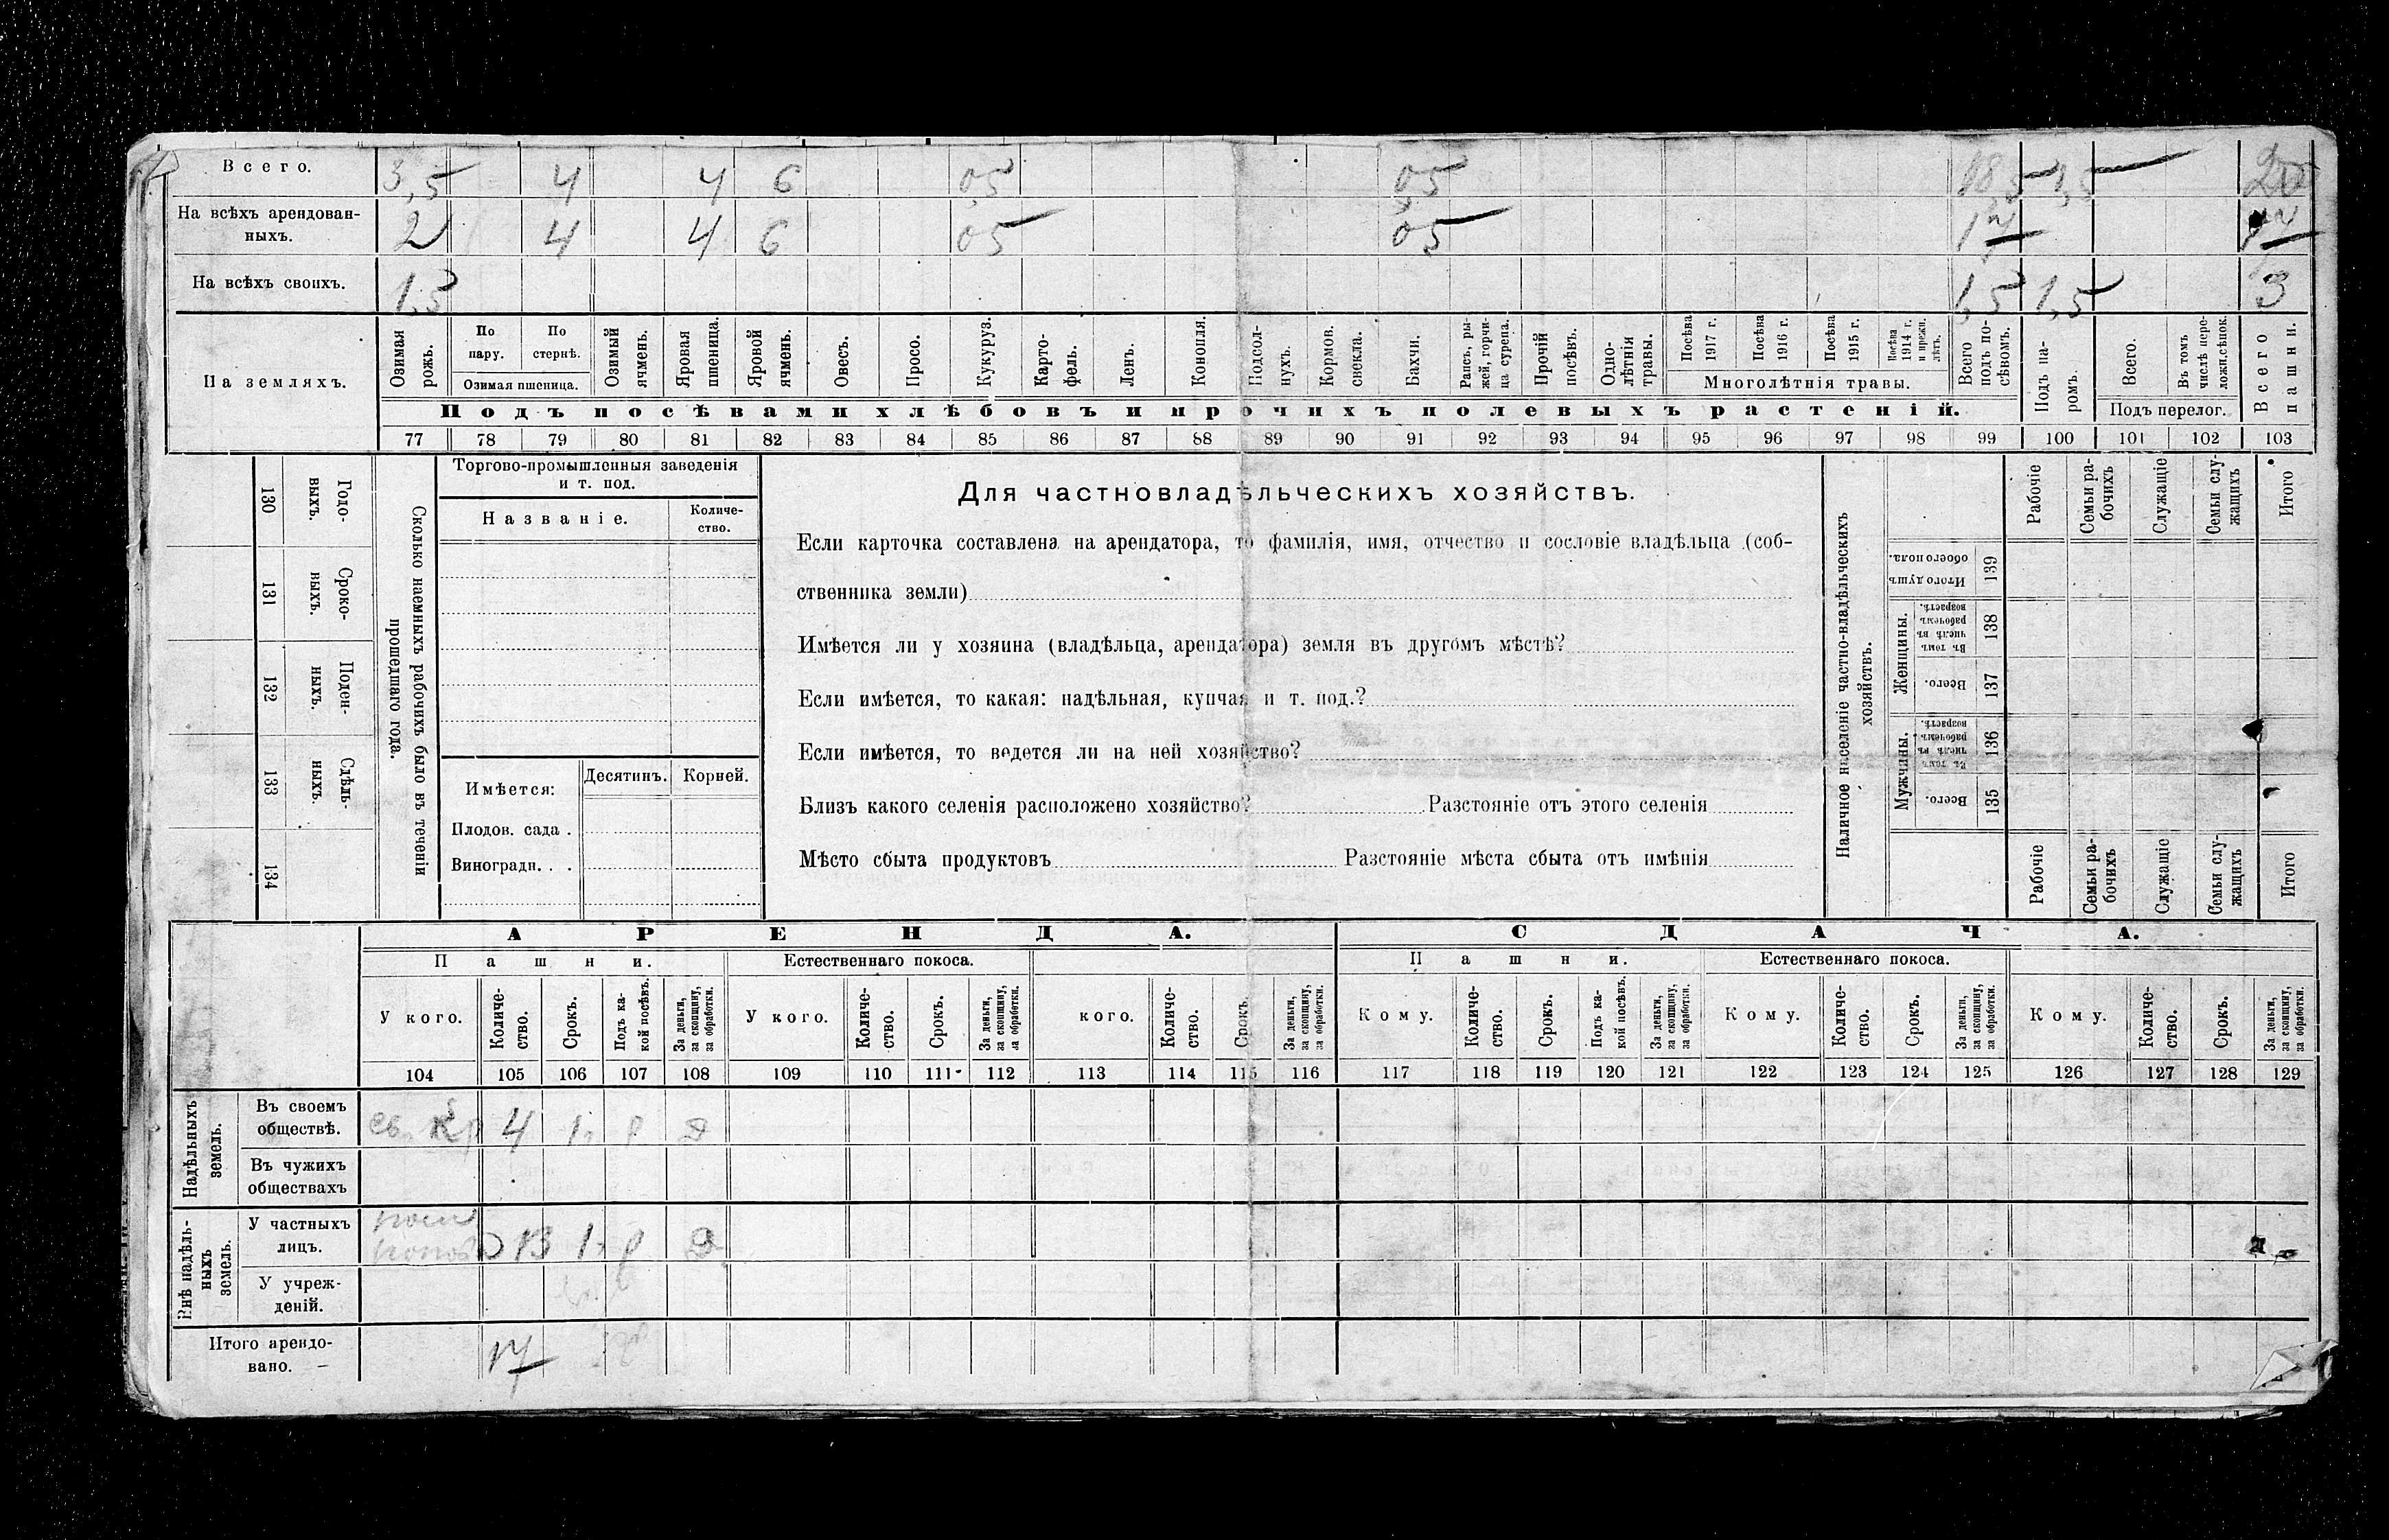 Всего. 3,5 4 4 6 0,5 0,5 18,5 1,5
На всѣхъ арендован-
ныхъ. 2 4 4 6 05 05 17 17
На всѣхъ своихъ. 1,5 1,5 1,5 3
На земляхъ.
Озимая рожь.
По пару.
По стернѣ.
Озимая пшеница.
Озимый ячмень.
Яровая пшеница.
Яровой ячмень.
Овесъ.
Просо.
Кукуруз.
Карто-
фель.
Ленъ.
Конопля.
Подсол-
нухъ.
Кормов. свекла.
Бахчи.
Рапсъ, ры-
жей, горчи-
ца сурепа.
Прочій посѣвъ.
Одно-
лѣтнія травы.
Посѣва 1917 г.
Посѣва 1916 г.
Посѣва 1915 г.
Посѣва 1914 г. и прежн. лѣтъ.
Многолѣтнія травы.
Всего подъ по-
сѣвомъ.
Подъ па-
ромъ.
Всего.
Въ томъ числѣ пере-
ложн. сѣнок.
Подъ перелог.
Всего пашни.
Подъ посѣвами хлѣбовъ и прочихъ полевыхъ растеній.
77 78 79 80 81 82 83 84 85 86 87 88 89 90 91 92 93 94 95 96 97 98 99 100 101 102 103
130 Годо-
выхъ.
131 Сроко-
ныхъ.
132 Поден-
ныхъ.
133 Сдѣль-
ныхъ.
134
Сколько наемныхъ рабочихъ было въ теченіи
прошедшаго года.
Торгово-промышленныя заведенія
и т. под.
Названіе.
Количе-
ство.
Имѣется: Десятинъ. Корней.
Плодов. сада .
Виноградн. . .
Для частновладѣльческихъ хозяйствъ.
Если карточка составлена на арендатора, то фамилія, имя, отчество и сословіе владѣльца (соб-
ственника земли)
Имѣется ли у хозяина (владѣльца, арендатора) земля въ другомъ мѣстѣ?
Если имѣется, то какая: надѣльная, купчая и т. под.?
Если имѣется, то ведется ли на ней хозяйство?
Близъ какого селенія расположено хозяйство? Разстояніе отъ этого селенія
Мѣсто сбыта продуктовъ Разстояніе мѣста сбыта отъ имѣнія
Наличное населеніе частно-владѣльческихъ
хозяйствъ.
Рабочіе
Семьи ра-
бочихъ
Служащіе
Семьи слу-
жащихъ
Итого
Итого душъ обоего пола. 139
Женщины.
Въ томъ числѣ въ рабочемъ возрастѣ. 138
Всего. 137
Мужчины.
Въ томъ числѣ въ рабочемъ возрастѣ. 136
Всего. 135
Рабочіе
Семьи ра-
бочихъ
Служащіе
Семьи слу-
жащихъ
Итого
АРЕНДА. СДАЧА.
Пашни. Естественнаго покоса. Пашни. Естественнаго покоса.
У кого.
Количе-
ство.
Срокъ.
Подъ ка-
кой посѣвъ.
За деньги,
за скопщину,
за обработки.
У кого.
Количе-
ство.
Срокъ.
За деньги,
за скопщину,
за обработки.
кого.
Количе-
ство.
Срокъ.
За деньги,
за скопщину,
за обработки.
Кому.
Количе-
ство.
Срокъ.
Подъ ка-
кой посѣвъ.
За деньги,
за скопщину,
за обработки.
Кому.
Количе-
ство.
Срокъ.
За деньги,
за скопщину,
за обработки.
Кому.
Количе-
ство.
Срокъ.
За деньги,
за скопщину,
за обработки.
104 105 106 107 108 109 110 111 112 113 114 115 116 117 118 119 120 121 122 123 124 125 126 127 128 129
Надѣльныхъ
земель.
Въ своемъ
обществѣ. 4 1
Въ чужихъ
обществахъ
Внѣ надѣль-
ныхъ
земель.
У частныхъ
лицъ. 13 1
У учреж-
деній.
Итого арендо-
вано. 17